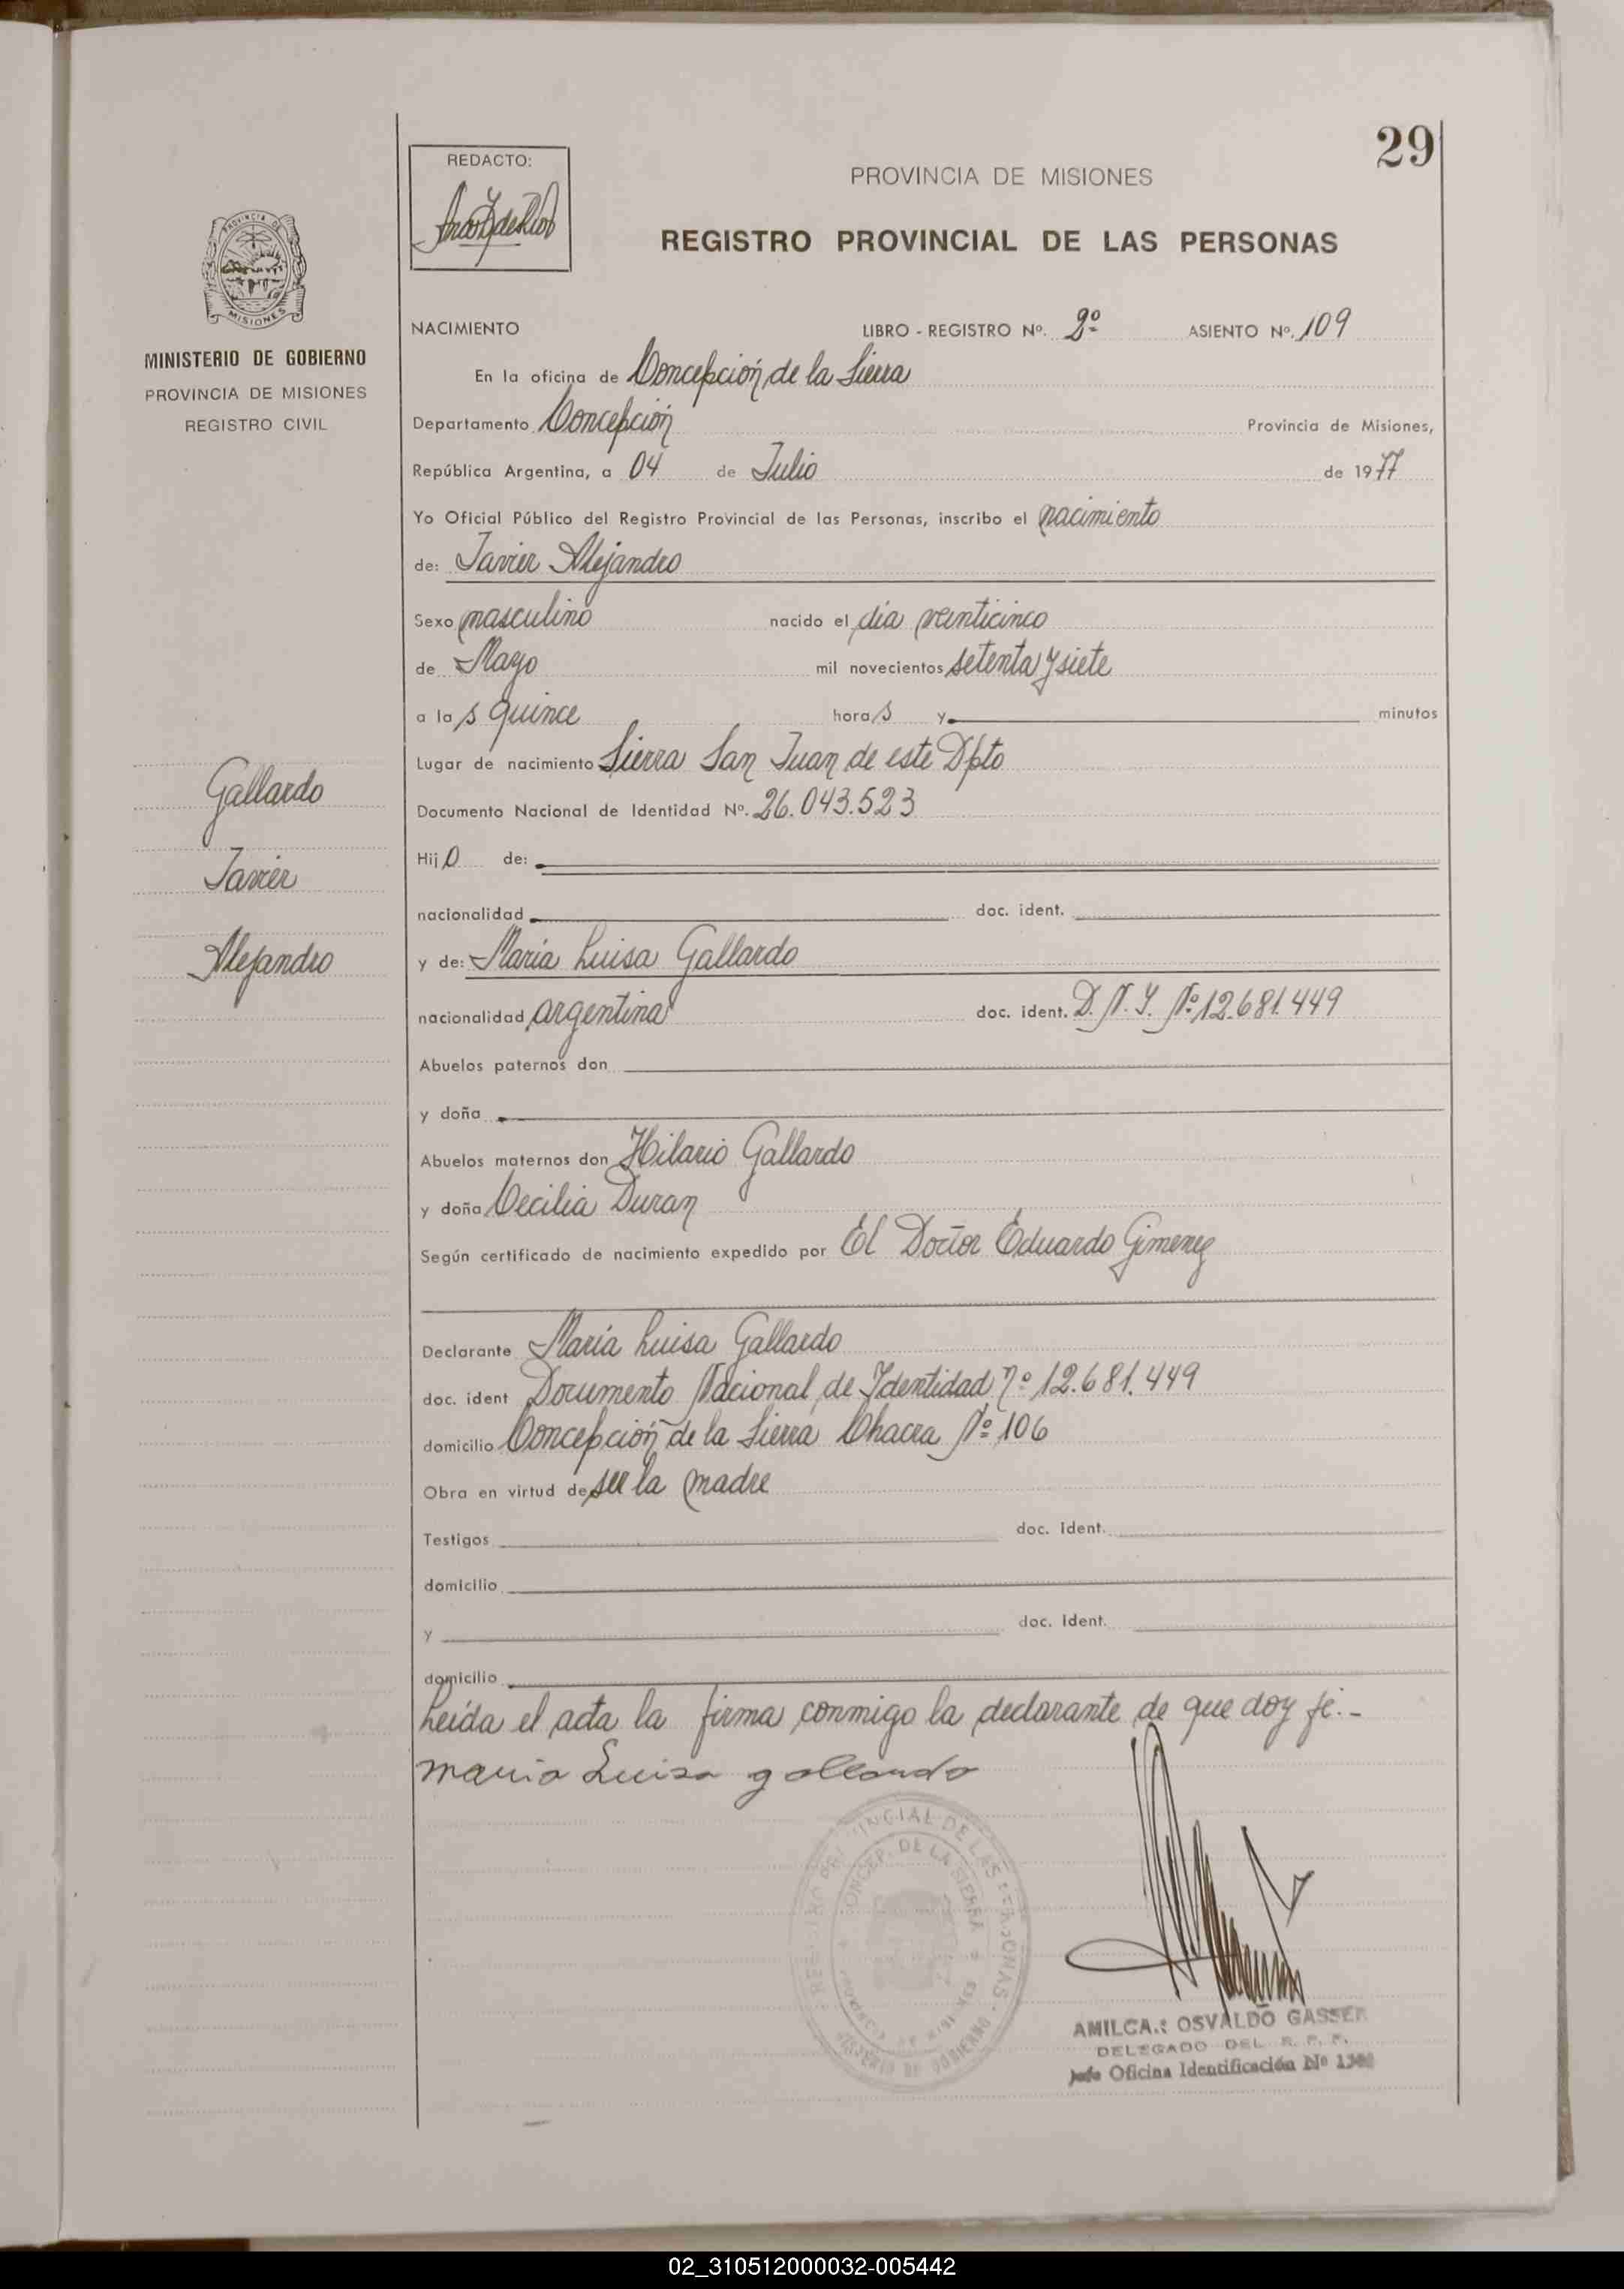 29
REDACTO:
PROVINCIA DE MISIONES
REGISTRO PROVINCIAL DE LAS PERSONAS
PROVINCIA DE
MISIONES
MINISTERIO DE GOBIERNO
PROVINCIA DE MISIONES
REGISTRO CIVIL
NACIMIENTO LIBRO - REGISTRO Nº. 2º ASIENTO Nº. 109
En la oficina de Concepción de la Sierra
Departamento Concepción Provincia de Misiones,
República Argentina, a 04 de Julio de 1977
Yo Oficial Público del Registro Provincial de las Personas, inscribo el nacimiento
de: Javier Alejandro
Sexo masculino nacido el día veinticinco
de Mayo mil novecientos setenta y siete
a las quince horas y minutos
Lugar de nacimiento Sierra San Juan de este Dpto
Documento Nacional de Identidad Nº. 26.043.523
Gallardo
Javier
Alejandro
Hijo de:
nacionalidad doc. ident.
y de: María Luisa Gallardo
nacionalidad argentina doc. ident. D.N.I. Nº 12.681.449
Abuelos paternos don
y doña
Abuelos maternos don Hilario Gallardo
y doña Cecilia Duran
Según certificado de nacimiento expedido por El Doctor Eduardo Gimenez
Declarante María Luisa Gallardo
doc. ident Documento Nacional de Identidad Nº 12.681.449
domicilio Concepción de la Sierra Chacra Nº 106
Obra en virtud de ser la madre
Testigos doc. ident.
domicilio
y doc. ident.
domicilio
Leída el acta la firma conmigo la declarante de que doy fé.-
maria Luisa gallardo
REGISTRO PROVINCIAL DE LAS PERSONAS
CONCEP. DE LA SIERRA
PROVINCIA DE MISIONES
MINISTERIO DE GOBIERNO
AMILCAR OSVALDO GASSER
DELEGADO DEL R. P. P.
Jefe Oficina Identificación Nº
02_310512000032-005442